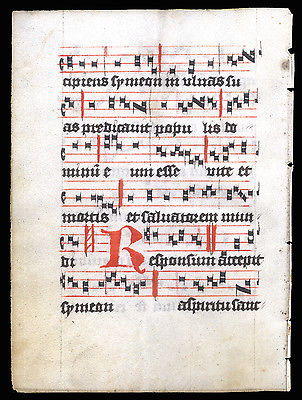 cipiens symeon in vlnas su
as predicauit popu lis do
minū e um esse vite et
mortis et saluatorem mun
di Responsum accepit
symeon a spiritu sanc